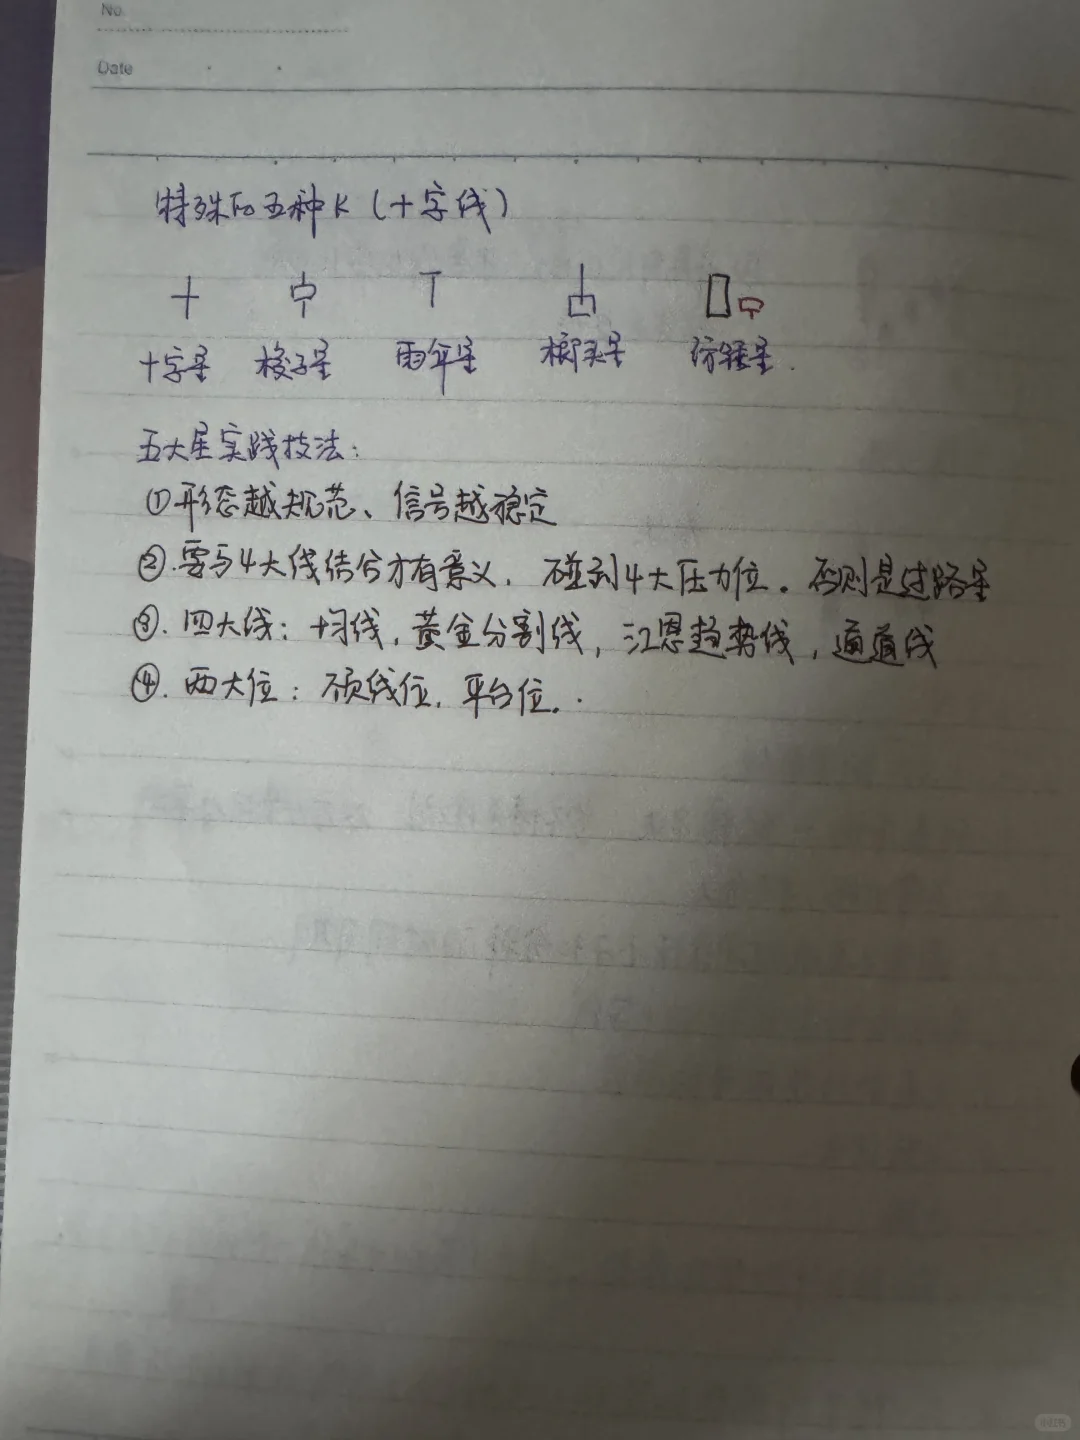 No.
Date
特殊的五种K（十字线）
十字星 梭子星 雨伞星 榔头星 纺锤星.
五大星实践技法：
①形态越规范、信号越稳定
②.要与4大线结合才有意义，不碰到4大压力位。否则是过路星
③.四大线：均线，黄金分割线，江恩趋势线，通道线
④.两大位：颈线位，平台位.
小红书